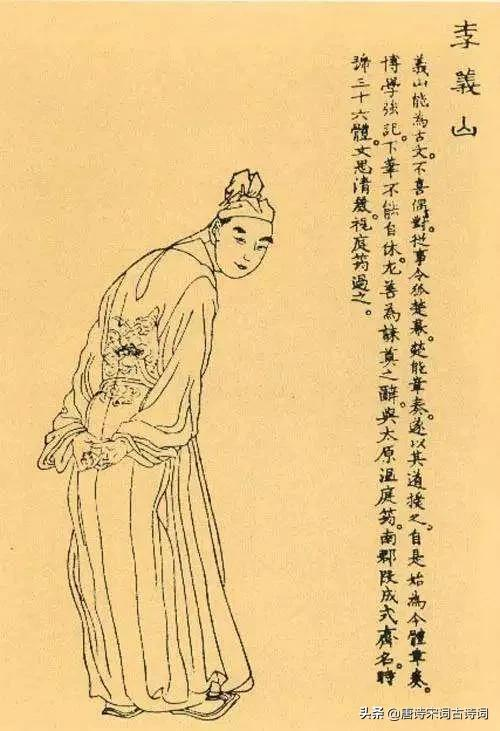 李義山
義山能為古文。不喜偶對。從事令狐楚幕。楚能章奏。遂以其道授之。自是始為今體章奏。
博學強記。下筆不能自休。尤善為誄奠之辭。與太原溫庭筠。南郡段成式齊名。時
號三十六體。文思清麗。視庭筠過之。
头条 @唐诗宋词古诗词